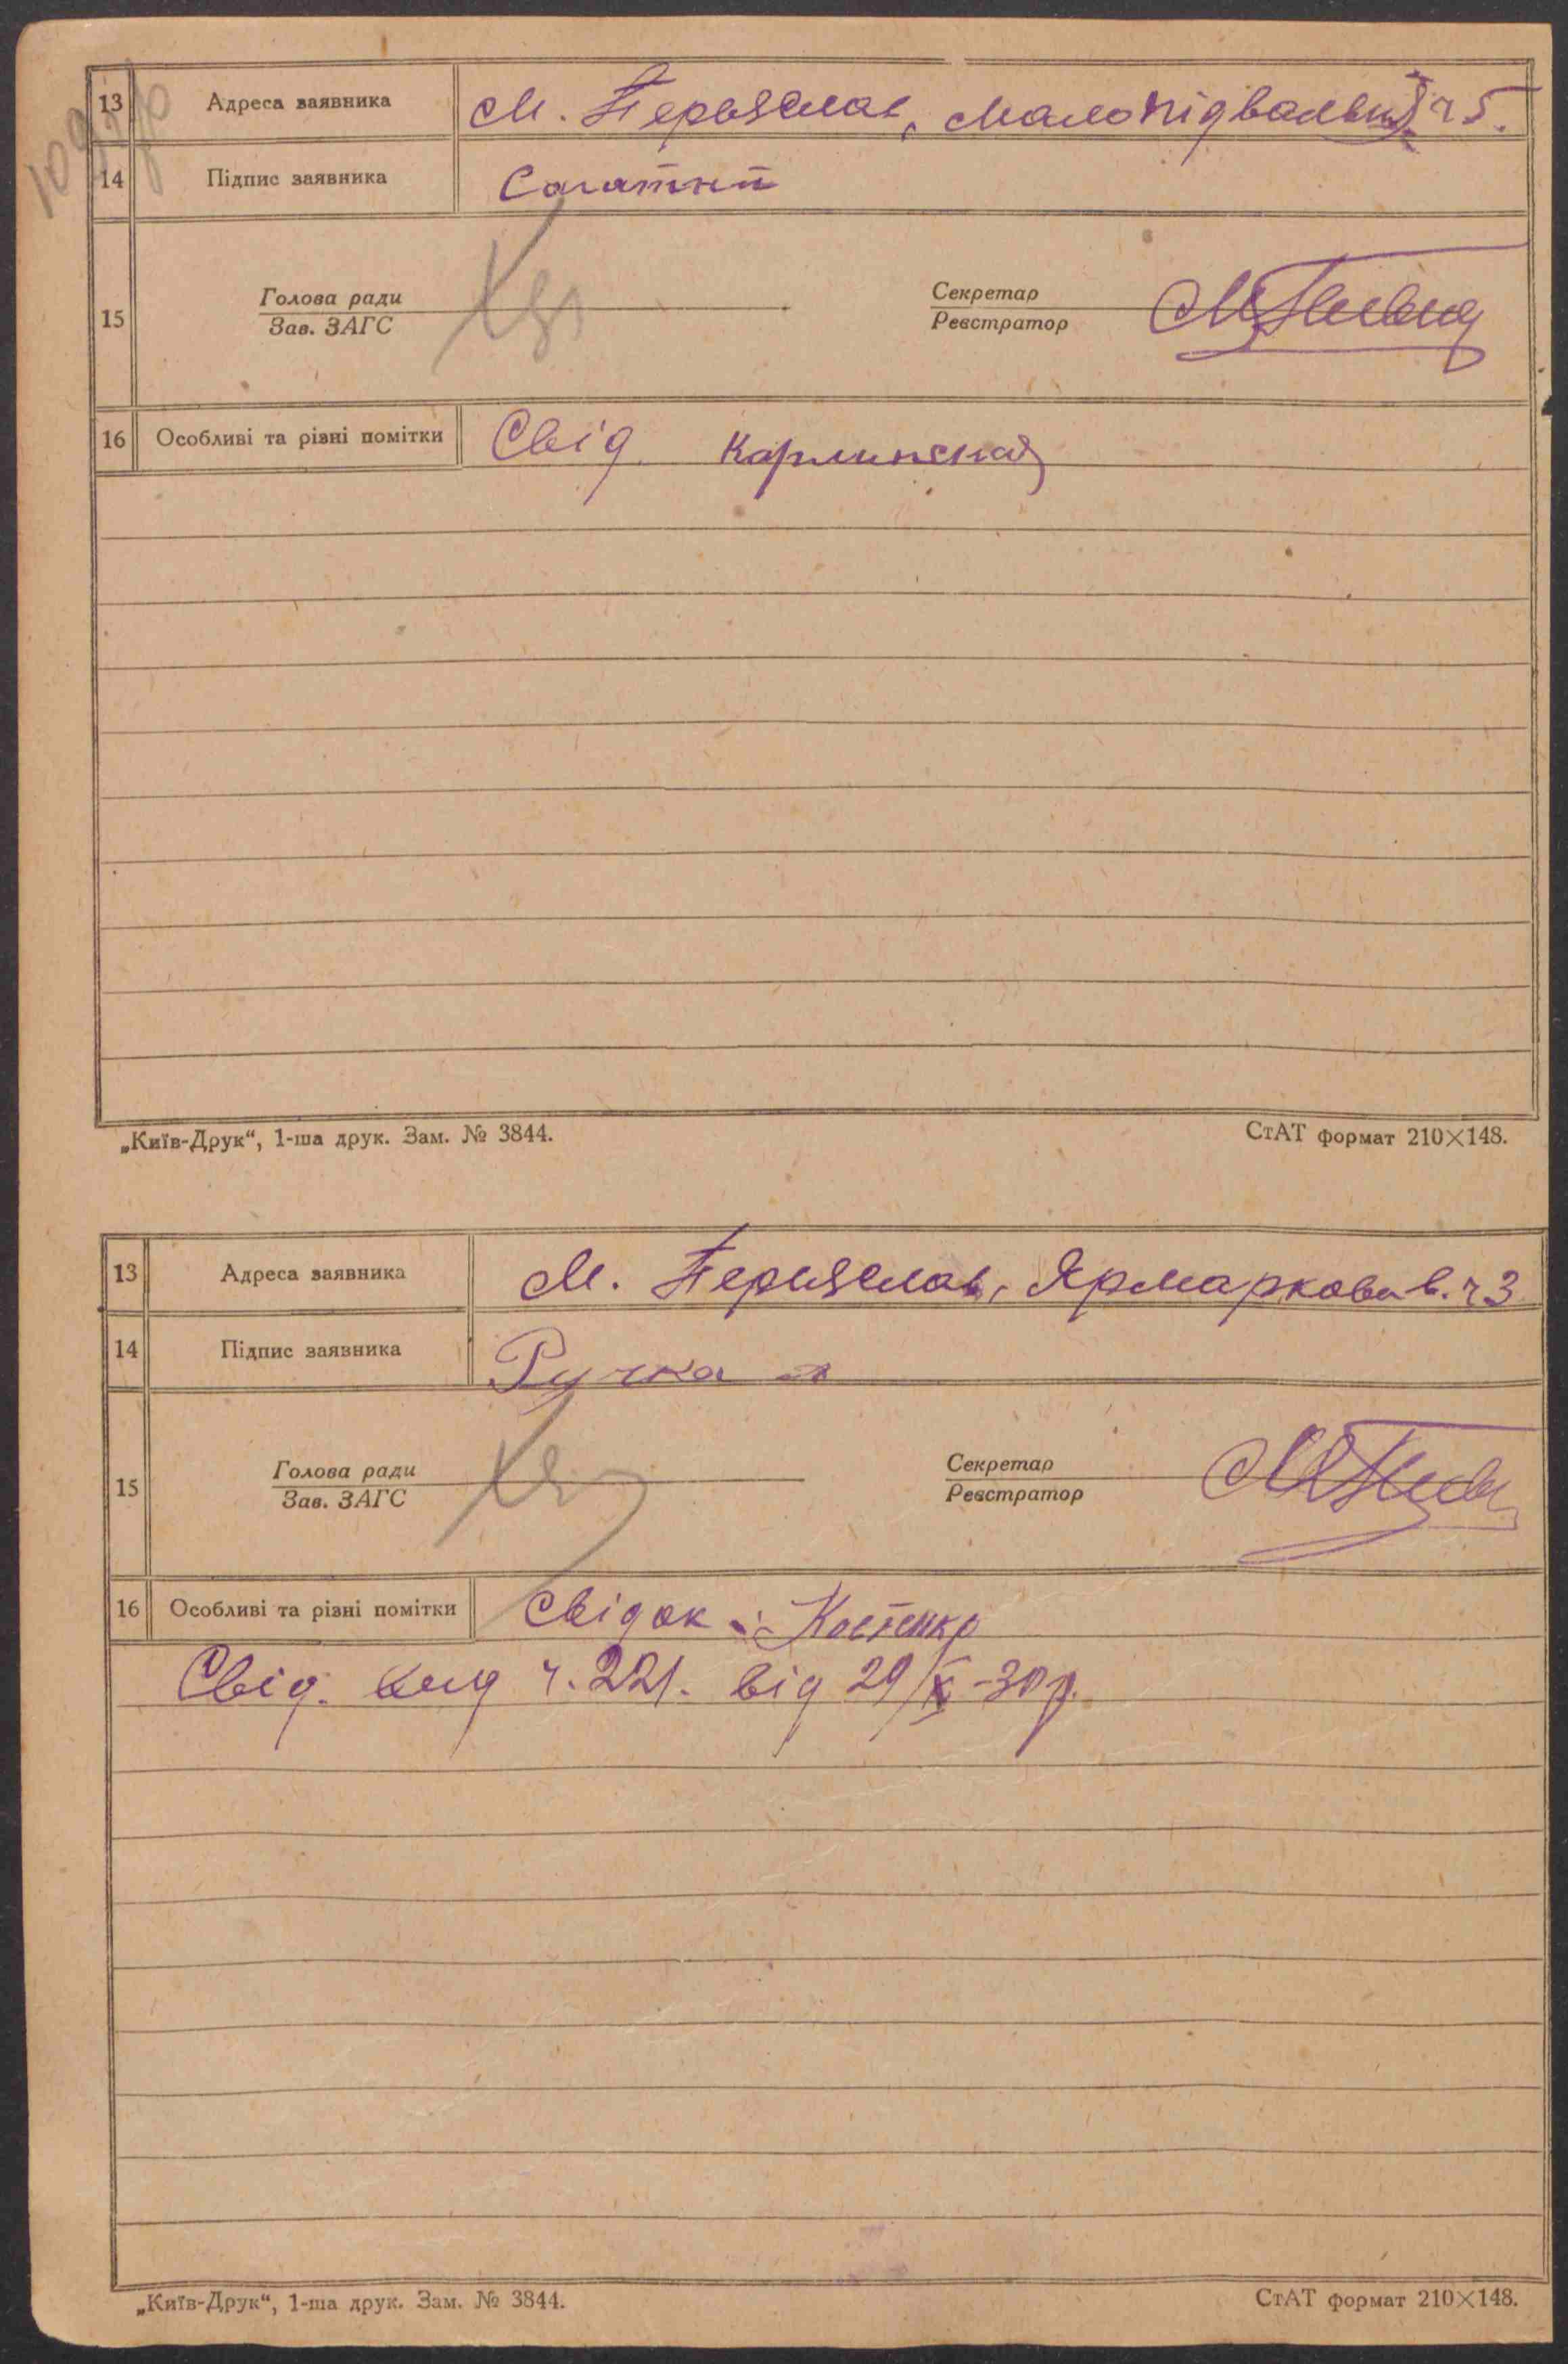 13 Адреса заявника М. Переяслав, Малопідвальний ч 5.
14 Підпис заявника
15 Голова ради
Зав. ЗАГС
Секретар
Реєстратор
16 Особливі та різні помітки Свід. Карлинская
„Київ-Друк“, 1-ша друк. Зам. № 3844. СтАТ формат 210×148.
13 Адреса заявника М. Переяслав, Ярмаркова в. ч 3
14 Підпис заявника Ручка
15 Голова ради
Зав. ЗАГС
Секретар
Реєстратор
16 Особливі та різні помітки Свідок: Костенко
Свід. вид ч. 221. від 29/X-30 р.
„Київ-Друк“, 1-ша друк. Зам. № 3844. СтАТ формат 210×148.